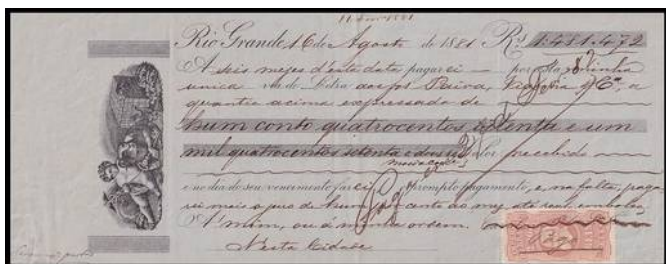 Rio Grande 16 de Agosto de 1881 Rs 1:481.472
A seis mezes d'esta data pagarei por esta minha
unica via de Letra aos Paiva, & Cª, a
quantia acima expressada de
hum conto quatrocentos oitenta e um
mil quatrocentos setenta e dous rs valor recebido
e no dia de seu vencimento farei prompto pagamento, e na falta, paga
rei mais o juro de hum por cento ao mez até real embolso
A mim, ou á minha ordem.
Nesta Cidade